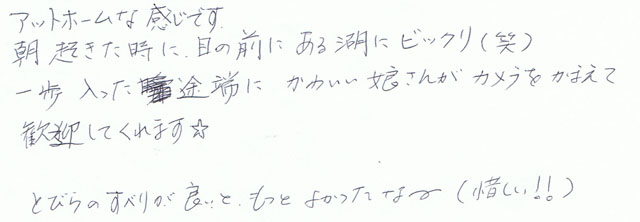 アットホームな感じです.
朝起きた時に、目の前にある湖にビックリ(笑)
一歩入った途端にかわいい娘さんがカメラをかまえて
歓迎してくれます☆
とびらのすべりが良いと、もっとよかったなー(惜しい!!)